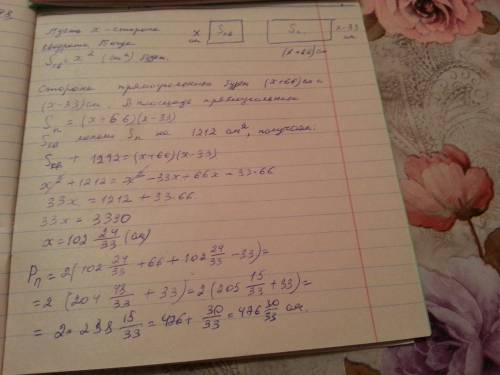 Пусть x - сторона
квадрата. Тогда
Sкв = x² (см²) будет.
x см
Sкв
Sп
x-33 см
(x+66) см
Стороны прямоугольника будут (x+66) см и
(x-33) см, а площадь прямоугольника
Sп = (x+66)(x-33)
Sкв меньше Sп на 1212 см², получаем:
Sкв + 1292 = (x+66)(x-33)
x² + 1212 = x² - 33x + 66x - 33·66
33x = 1212 + 33·66
33x = 3390
x = 102 24/33 (см)
Pп = 2(102 24/33 + 66 + 102 24/33 - 33) =
= 2 (204 48/33 + 33) = 2(205 15/33 + 33) =
= 2 · 238 15/33 = 476 + 30/33 = 476 30/33 см.